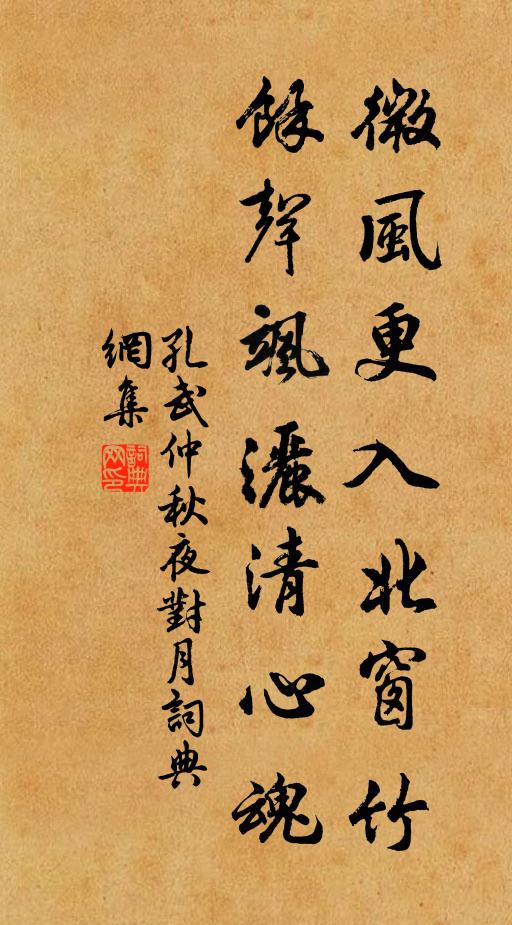 微風更入北窗竹
餘聲颯灑清心魂
孔武仲秋夜對月詞典
網集
詞典網印